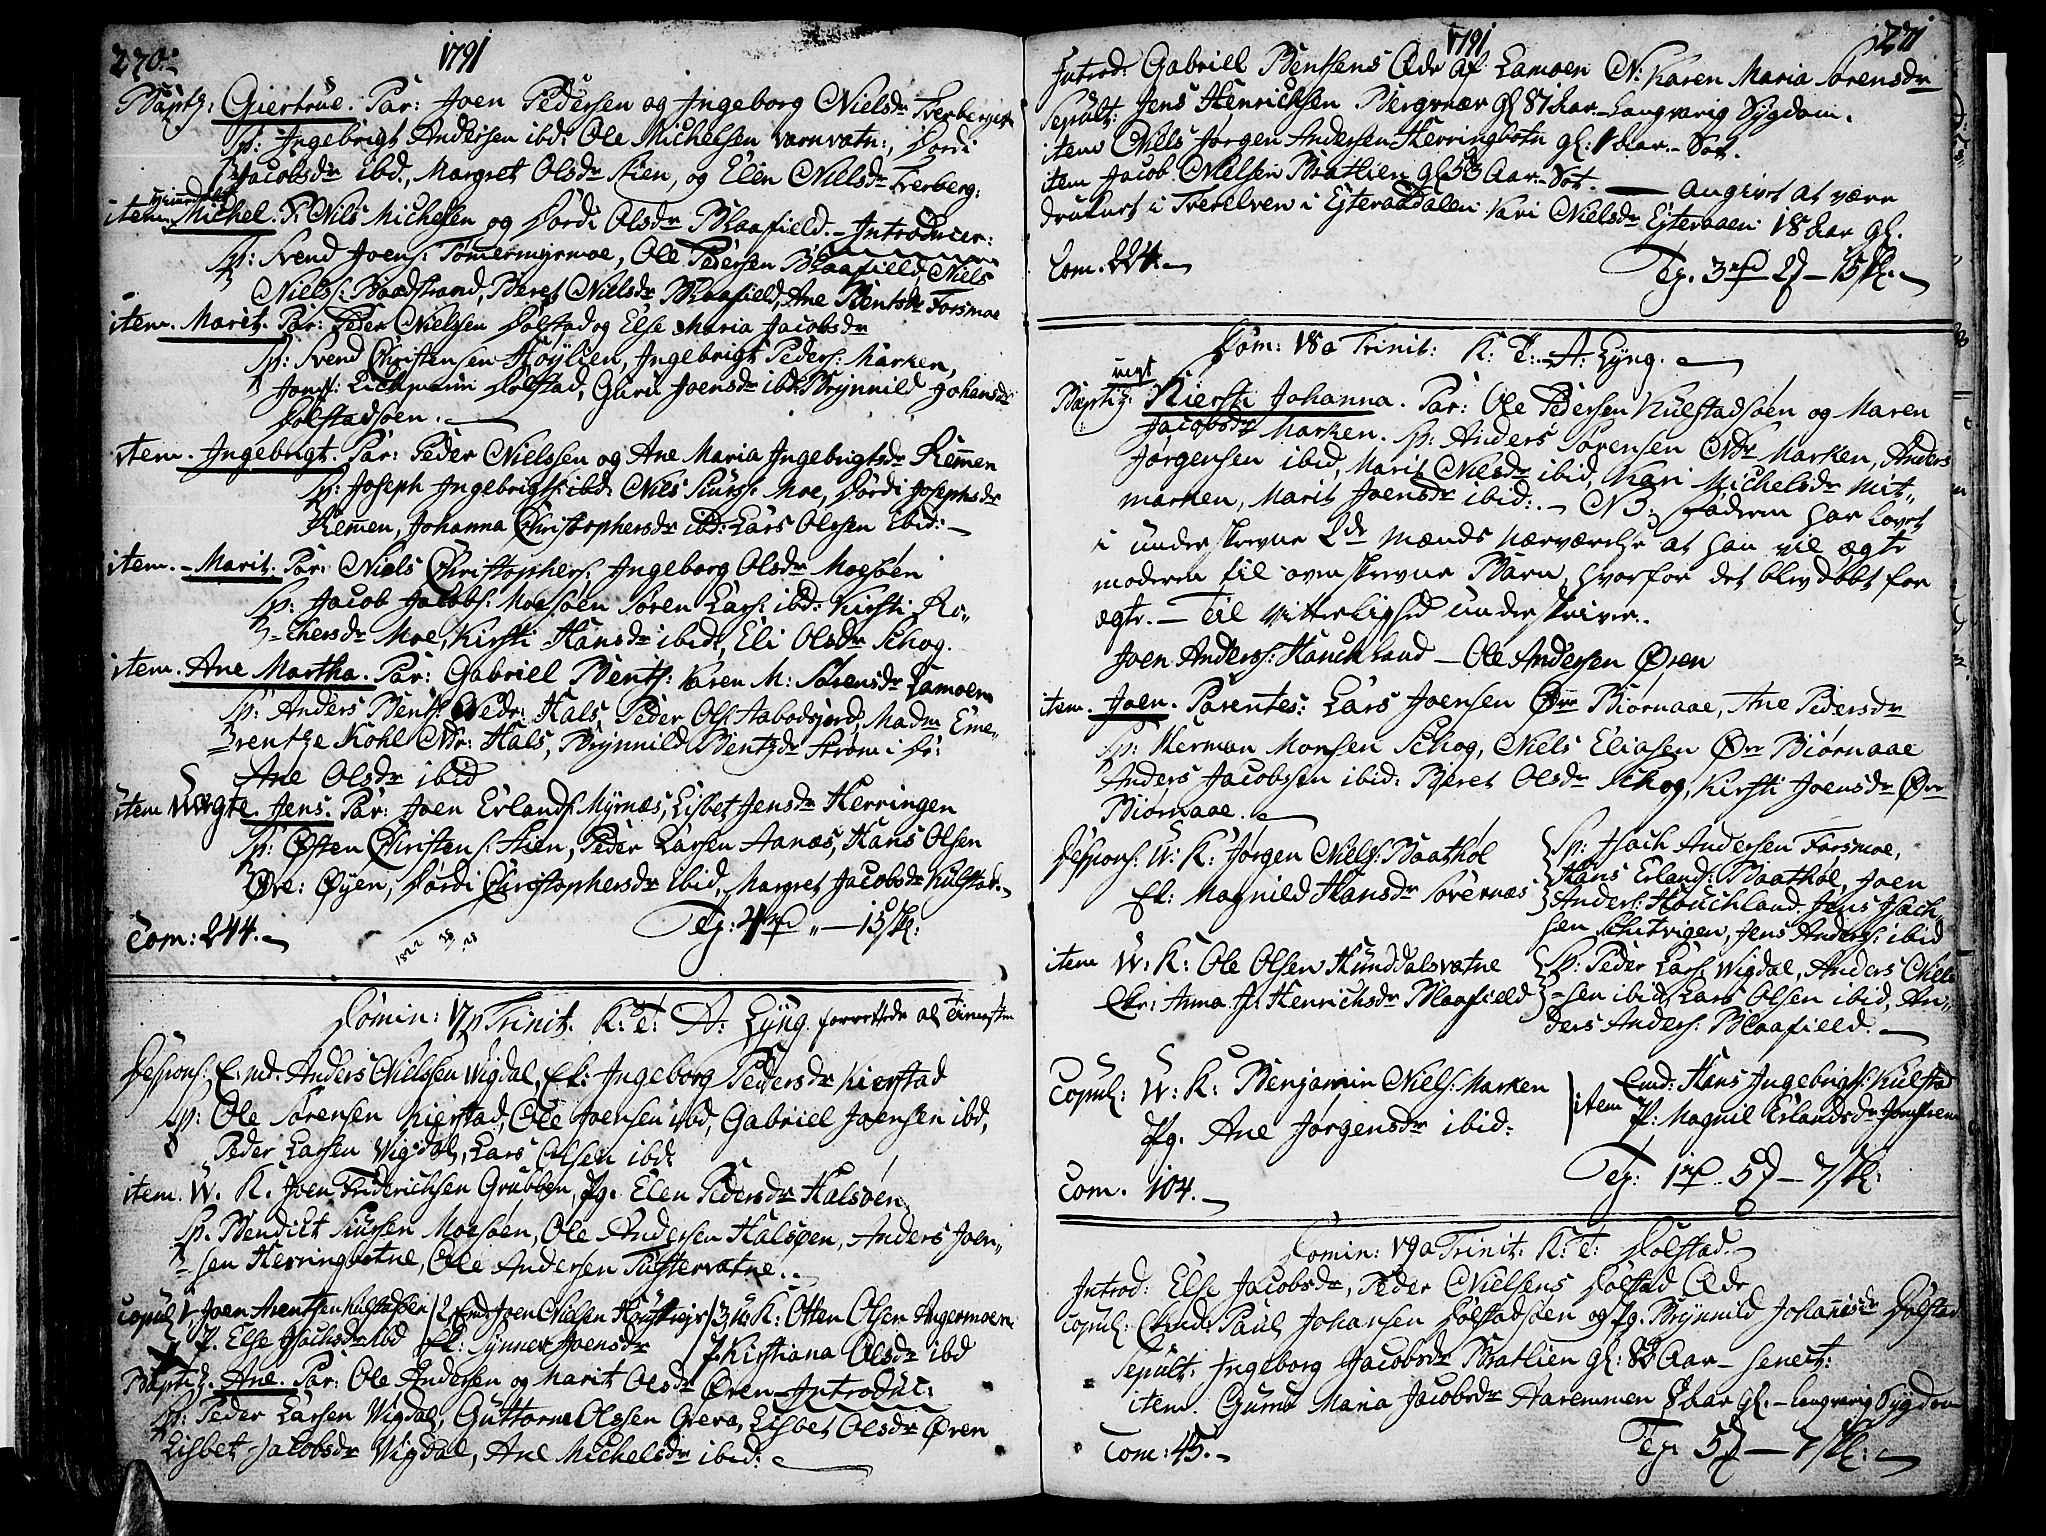 270. 1791
Baptz: Giertrue. Par: Joen Pedersen og Ingeborg Nielsdr Tverberget
Sp: Ingebrigt Andersen ibd: Ole Michelsen Varnvatn:, Dordi
Jacobsdr ibd., Margret Olsdr Stien, og Elen Nielsdr Tverberg:
item. Michel. P. Nils Michelsen og Dordi Olsdr Blaafield. Introducer:
Sp: Svend Joens: Tømermyrmoe, Ole Pedersen Blaafield Niels
Nielss: Baadstrand, Beret Nielsdr Blaafield, Ane Bentsdr Forsmoe
item. Marit. Par: Peder Nielssen Dolstad og Else Maria Jacobsdr
Sp: Svend Christensen Høylien, Ingebrigt Peders: Marken,
Jomf: Eichmann Dolstad, Guru Joensdr ibd: Brynnild Johansdr
Dolstadsøen.
item. Ingebrigt. Par: Peder Nielssen og Ane Maria Ingebrigtsdr Remen
Sp: Joseph Ingebrigts: ibd: Niels Siurss: Moe, Dordi Josephsdr
Remen, Johanna Christophersdr ibd: Lars Olssen Ibid:
item. Marit. Par: Niels Christophers: Ingeborg Olsdr Moesøen
Sp: Jacob Jacobs: Moesøen Søren Lars: ibd: Kirsti
Moe, Kirsti Hansdr ibid, Eli Olsdr Schog.
item. Ane Martha. Par: Gabriel Bents: Karen M: Sørensdr Lamoen
Sp: Anders Bents: Nedr: Hals, Peder Ols: Aabodsjord, Madm Eme-
rentze Kohl Ndr: Hals, Brynnild Bentzdr
Ane Olsdr ibid
item Uægte. Jens. Par: Joen Erlands: Myrnæs, Lisbet Jensdr Herringen
Sp: Østen Christens: Stien, Peder Larsen Aanæs, Hans Olsen
Øvr: Øyen, Dordi Christophersdr ibid, Margret Jacobsdr Kulstad.
Com: 244. Teg: 4 - 15 sk:
Domin: 17 p Trinit. K: T: A: Lyng. forrettede al Tienesten
Despons: E:md: Anders Nielssen Vigdal, Ek: Ingeborg Pedersdr Kierstad
Sp: Ole Sørensen Kierstad, Ole Joensen ibd, Gabriel Joensen ibd,
Peder Larsen Vigdal, Lars Olsen ibd:
item. W. K. Joen Friderichsen Grubben, Pg. Elen Pedersdr Halsøen
Sp. Bendict Siursen Moesøen, Ole Andersen Halsøen, Anders Joen-
sen Herringvatne, Ole Andersen Tustervatne.
Copul 1, Joen Arentsen Kulstadsøen / 2 Emd Joen Nielsen / 3 U: K: Otten Olsen Angermoen
P. Else Isachsdr ibd Ek: Synnev Joensdr / P. Kirstiana Olsdr ibd
Baptiz. Ane. Par: Ole Andersen og Marit Olsdr Øren Introduc:
Sp: Peder Larsen Vigdal, Guttorm Olssen Lisbet Olsdr Øren
Lisbet Jacobsdr Vigdal, Ane Michelsdr ibid:
1791 271
Introd: Gabriel Bentsens Qde af Lamoen N: Karen Maria Sørensdr
Sepult: Jens Henrichsen Bergsnær gl 81 Aar. Langvarig Sygdom.
item Niels Jørgen Andersen Herringbotn gl: 1 Aar. Sot.
item Jacob Nielsen Bratlien gl 53 Aar. Sot. angivet at være
druknet i Tverelven i Eiteraadalen: Kari Nielsdr Eiteraaen: 18 Aar gl.
Com. 224. Teg. 3 2 - 15 sk.
Dom: 18 a Trinit: K: T: A. Lyng.
uegt
Baptiz: Kiersti Johanna. Par: Ole Pedersen Kulstadsøen og Maren
Jacobsdr Marken. Sp: Anders Sørensen Ndr Marken, Anders
Jørgensen ibid, Marit Nielsdr ibid, Kari Michelsdr Mit-
marken, Marit Joensdr ibid: NB: Faderen har lovet
i underskrevne 2de Mænds nærværelse at han vil ægte
moderen til ovenskrevne Barn, hvorfor det blev døbt for
ægte. Til Vitterlighed underskriver.
Joen Anderss: Hauchland - Ole Andersen Øren
item. Joen. Parentes: Lars Joensen Øvr Biornaae, Ane Pedersdr
Sp: Herman Monsen Schog, Niels Eliasen Øvr Biørnaae
Anders Jacobssen ibid: Beret Olsdr Schog, Kirsti Joensdr Øvr
Biornaae.
Despons: U: K: Jørgen Niels: Baathøl Sp: Isach Andersen Forsmoe,
Ek: Magnild Hansdr Sørernæs Hans Erlands: Baathøl, Joen
Anders: Houchland, Jens Isach-
sen Jens Anders: ibid
item W: K: Ole Olsen Hunddalsvatne Sp: Peder Lars: Wigdal, Anders Niel-
Ekr: Anna P: Henrichsdr Blaafield sen ibid, Lars Olsen ibid, An-
ders Anders: Blaafield.
Copul: U: K: Benjamin Niels: Marken / item Emd: Hans Ingebrigts: Kulstad
Pg. Ane Jørgensdr ibid: P: Magnil Erlandsdr
Com. 104. Teg: 1 5 - 7 sk:
Domin: 19 a Trinit: K: T: Dolstad.
Introd: Else Jacobsdr, Peder Nielsens Dolstad Qde
Copul: Emd: Paul Johansen Dolstadsøen og Pg. Brynnild Johansdr Dolstad
Sepult: Ingeborg Jacobsdr Bratlien gl: 82 Aar - senect:
item. Guru Maria Jacobsdr Aaremmen 8 Aar gl. - Langvarig Sygdom
Com: 45. Teg. 5 - 7 sk: